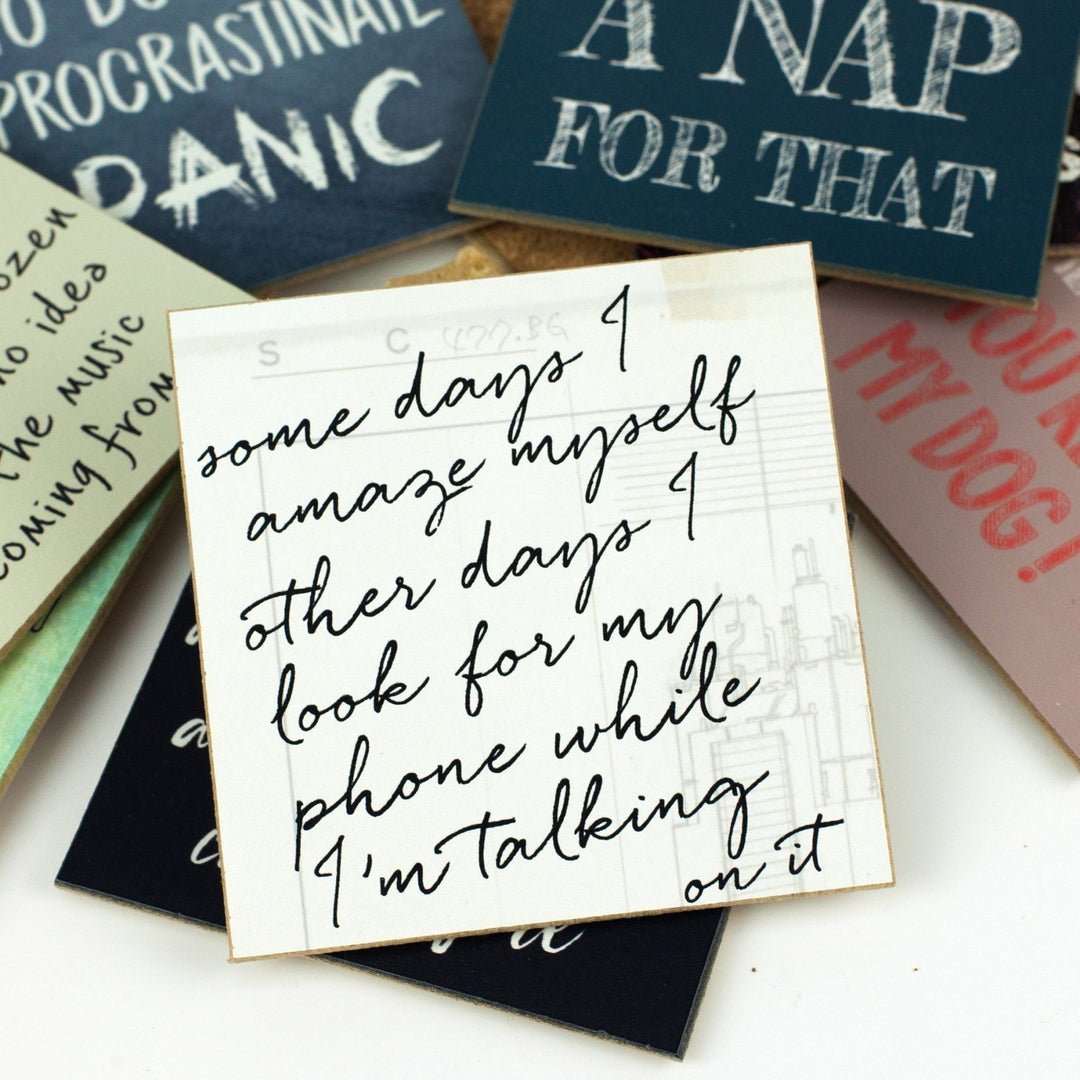 TO DO
PROCRASTINATE
PANIC
A NAP
FOR THAT
ozen
no idea
the music
coming from
MY DOG!
S C 477.BG
some days I
amaze myself
other days I
look for my
phone while
I'm talking
on it